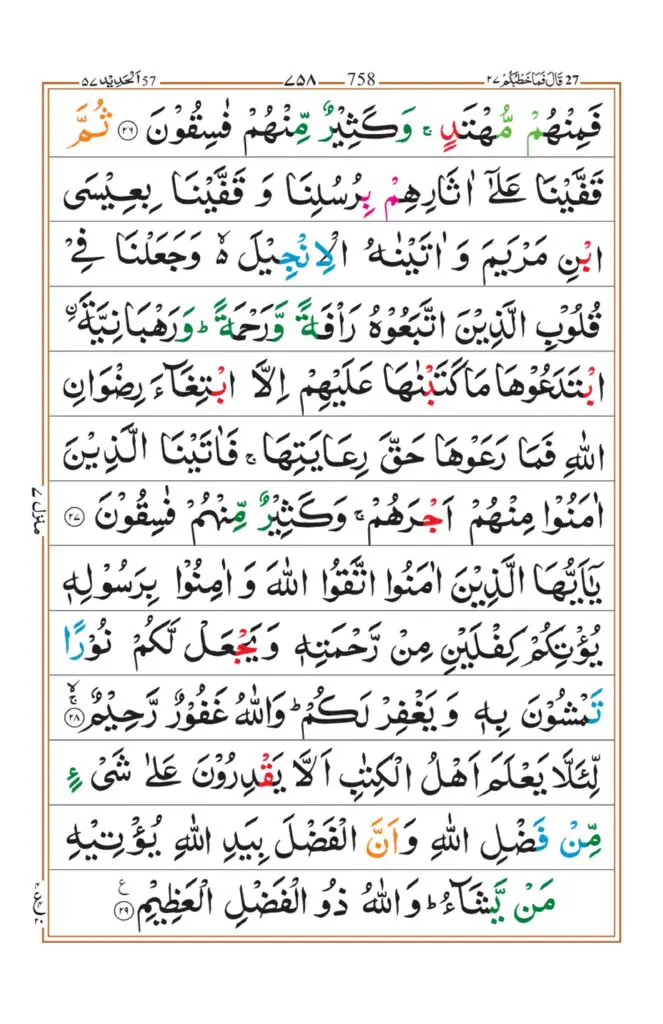 27 قَالَ فَمَا خَطْبُكُمْ ٢٧ 758 ٧٥٨ 57 اَلْحَدِيْد ٥٧
فَمِنْهُمْ مُّهْتَدٍ ۚ وَكَثِيْرٌ مِّنْهُمْ فٰسِقُوْنَ ﴿٢٦﴾ ثُمَّ
قَفَّيْنَا عَلٰٓى اٰثَارِهِمْ بِرُسُلِنَا وَ قَفَّيْنَا بِعِيْسَى
ابْنِ مَرْيَمَ وَ اٰتَيْنٰهُ الْاِنْجِيْلَ ۙ۬ وَجَعَلْنَا فِيْ
قُلُوْبِ الَّذِيْنَ اتَّبَعُوْهُ رَاْفَةً وَّرَحْمَةً ؕ وَرَهْبَانِيَّةَ ۨ
ابْتَدَعُوْهَا مَا كَتَبْنٰهَا عَلَيْهِمْ اِلَّا ابْتِغَآءَ رِضْوَانِ
اللّٰهِ فَمَا رَعَوْهَا حَقَّ رِعَايَتِهَا ۚ فَاٰتَيْنَا الَّذِيْنَ
اٰمَنُوْا مِنْهُمْ اَجْرَهُمْ ۚ وَكَثِيْرٌ مِّنْهُمْ فٰسِقُوْنَ ﴿٢٧﴾
يٰٓاَيُّهَا الَّذِيْنَ اٰمَنُوا اتَّقُوا اللّٰهَ وَ اٰمِنُوْا بِرَسُوْلِهٖ
يُؤْتِكُمْ كِفْلَيْنِ مِنْ رَّحْمَتِهٖ وَيَجْعَلْ لَّكُمْ نُوْرًا
تَمْشُوْنَ بِهٖ وَ يَغْفِرْ لَكُمْ ؕ وَاللّٰهُ غَفُوْرٌ رَّحِيْمٌ ۚۙ ﴿٢٨﴾
لِّئَلَّا يَعْلَمَ اَهْلُ الْكِتٰبِ اَلَّا يَقْدِرُوْنَ عَلٰى شَيْءٍ
مِّنْ فَضْلِ اللّٰهِ وَاَنَّ الْفَضْلَ بِيَدِ اللّٰهِ يُؤْتِيْهِ
مَنْ يَّشَآءُ ؕ وَاللّٰهُ ذُو الْفَضْلِ الْعَظِيْمِ ﴿٢٩﴾ ع
منزل ٧